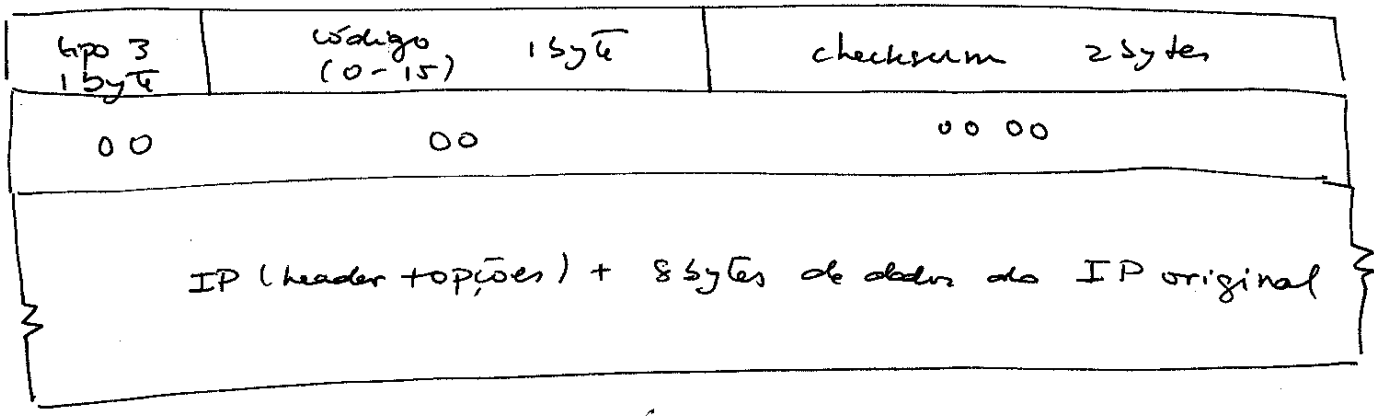 tipo 3 código 1 byte checksum 2 bytes
1 byte (0-15)
00 00 00 00
IP (header + opções) + 8 bytes de dados do IP original